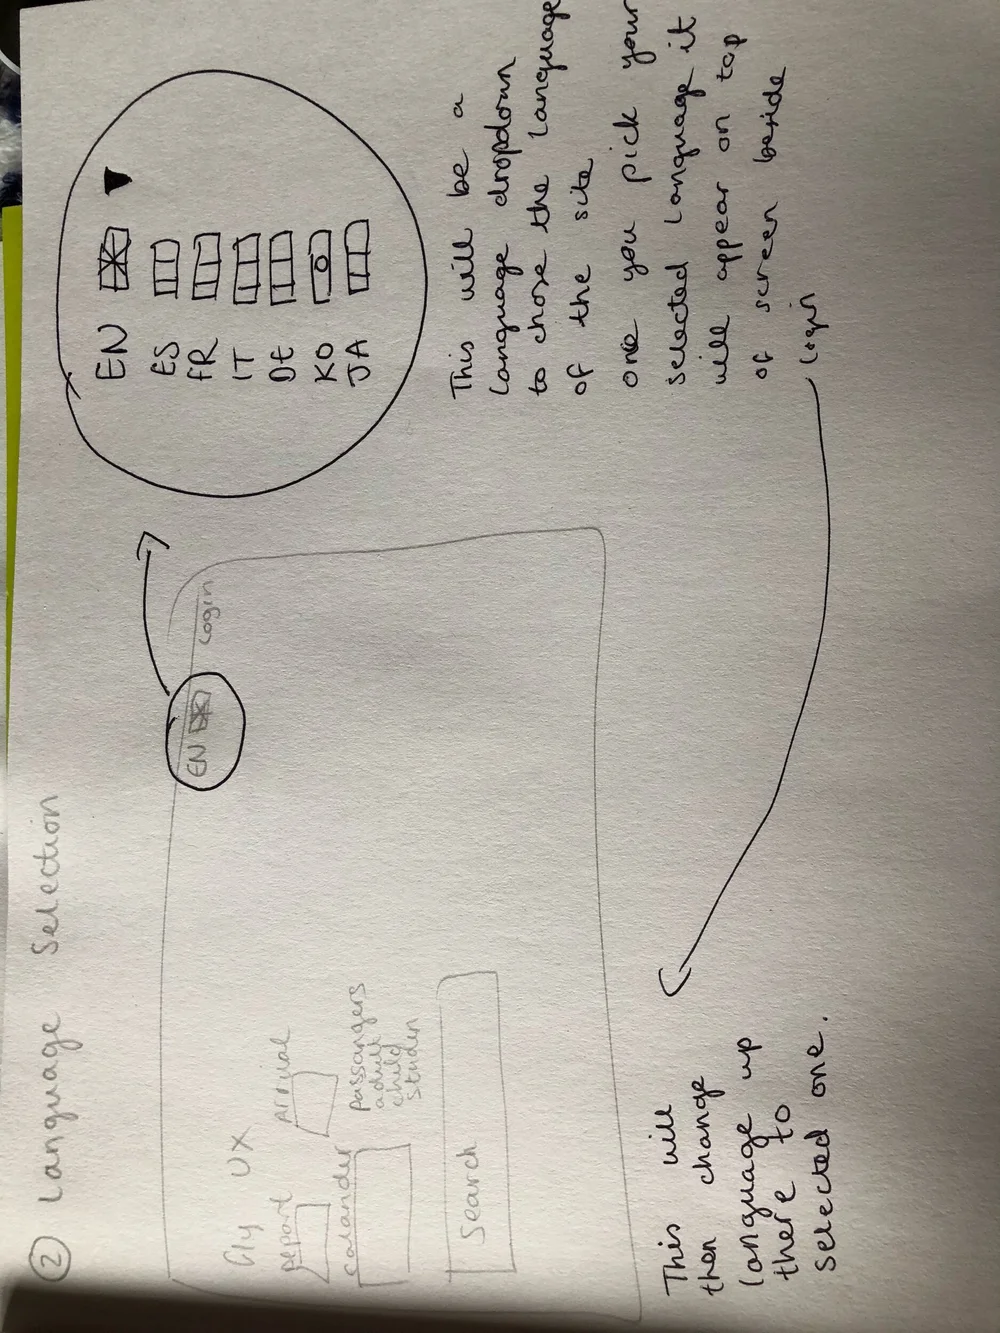 2 Language Selection
EN Login
Fly UX
depart Arrival
calander passangers
adult
child
studen
Search
EN
ES
FR
IT
DE
KO
JA
This will be a
language dropdown
to chose the language
of the site
one you pick your
selected language it
will appear on top
of screen beside
login
This will
then change
language up
there to
selected one.